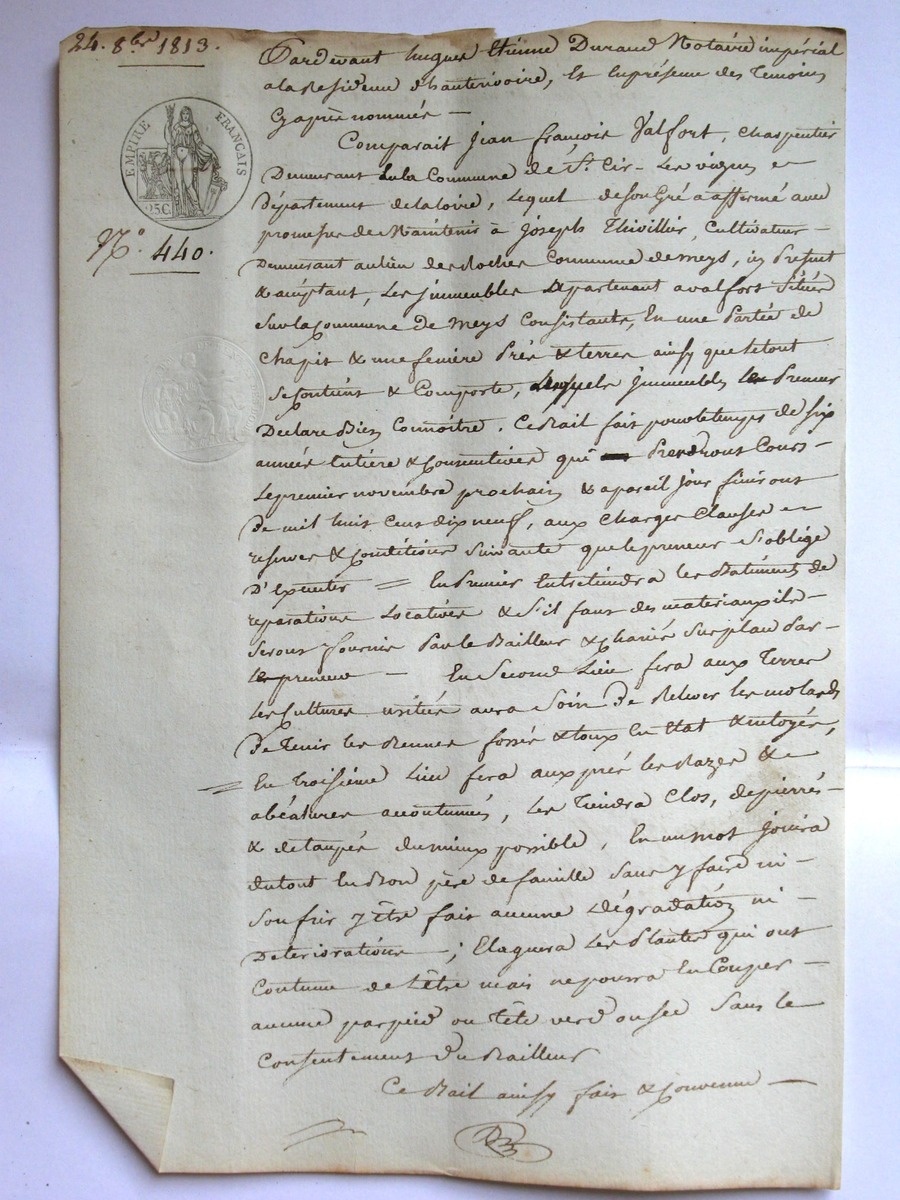 24. 8bre 1813.
EMPIRE FRANÇAIS
25C.
N.° 440.
Pardevant hugues Etienne Durand Notaire impérial
a la Residence d'hauterivoire, et en présence des Temoins
Cy après nommés —
Comparait Jean françois Valfort, charpentier
Demeurant en la Commune de St. Cir-Les vignes
Département de la loire, Lequel de son Gré a affermé avec
promesse de Maintenir à Joseph Thévillier, Cultivateur —
Demeurant au lieu des Rocher Commune de meys, ici Présent
& acceptant, Les jmmeubles appartenant a valfort Situés
Sur la Commune de meys Consistants, En une Partée de
Chapit & une feniere Prés & terres ainsy que le tout
Se Contient & Comporte, desquels jmmeubles le Preneur
Declare Bien Connoître. Ce Bail fait pour le temps de six
années Entière & Consecutives qui Prendront Cours —
Le premier novembre prochain & a pareil jour finiront
De mil huit Cent dix neuf, aux Charges Clauses
reserves & Conditions Suivante que le preneur S'oblige
D'Executer = En Premier Entretiendra les Batiments de
reparations Locatives & S'il faut des materiaux ils —
Seront fournis Par le Bailleur & chariés Sur plan Par —
le preneur — En Second Lieu fera aux Terres
Les Cultures usitées aura Soin De Relever les molards
De Tenir les fossés & toux En Etat & nétoyés,
= En Troisième Lieu fera aux prés les Razes &
abéalures accoutumés, les Tiendra Clos, depierrés —
& detaupés du mieux possible, En un mot jouira
du tout En Bon père de famille Sans y faire ni —
Souffrir y être fait aucune Dégradation ni —
Deteriorations —; Elaguera Les Plantes qui ont
Coutume de L'être mais ne pourra En Couper —
aucune par pied ou Tête verd ou sec Sans le
Consentement du Bailleur
Ce Bail ainsy fait & Convenu —